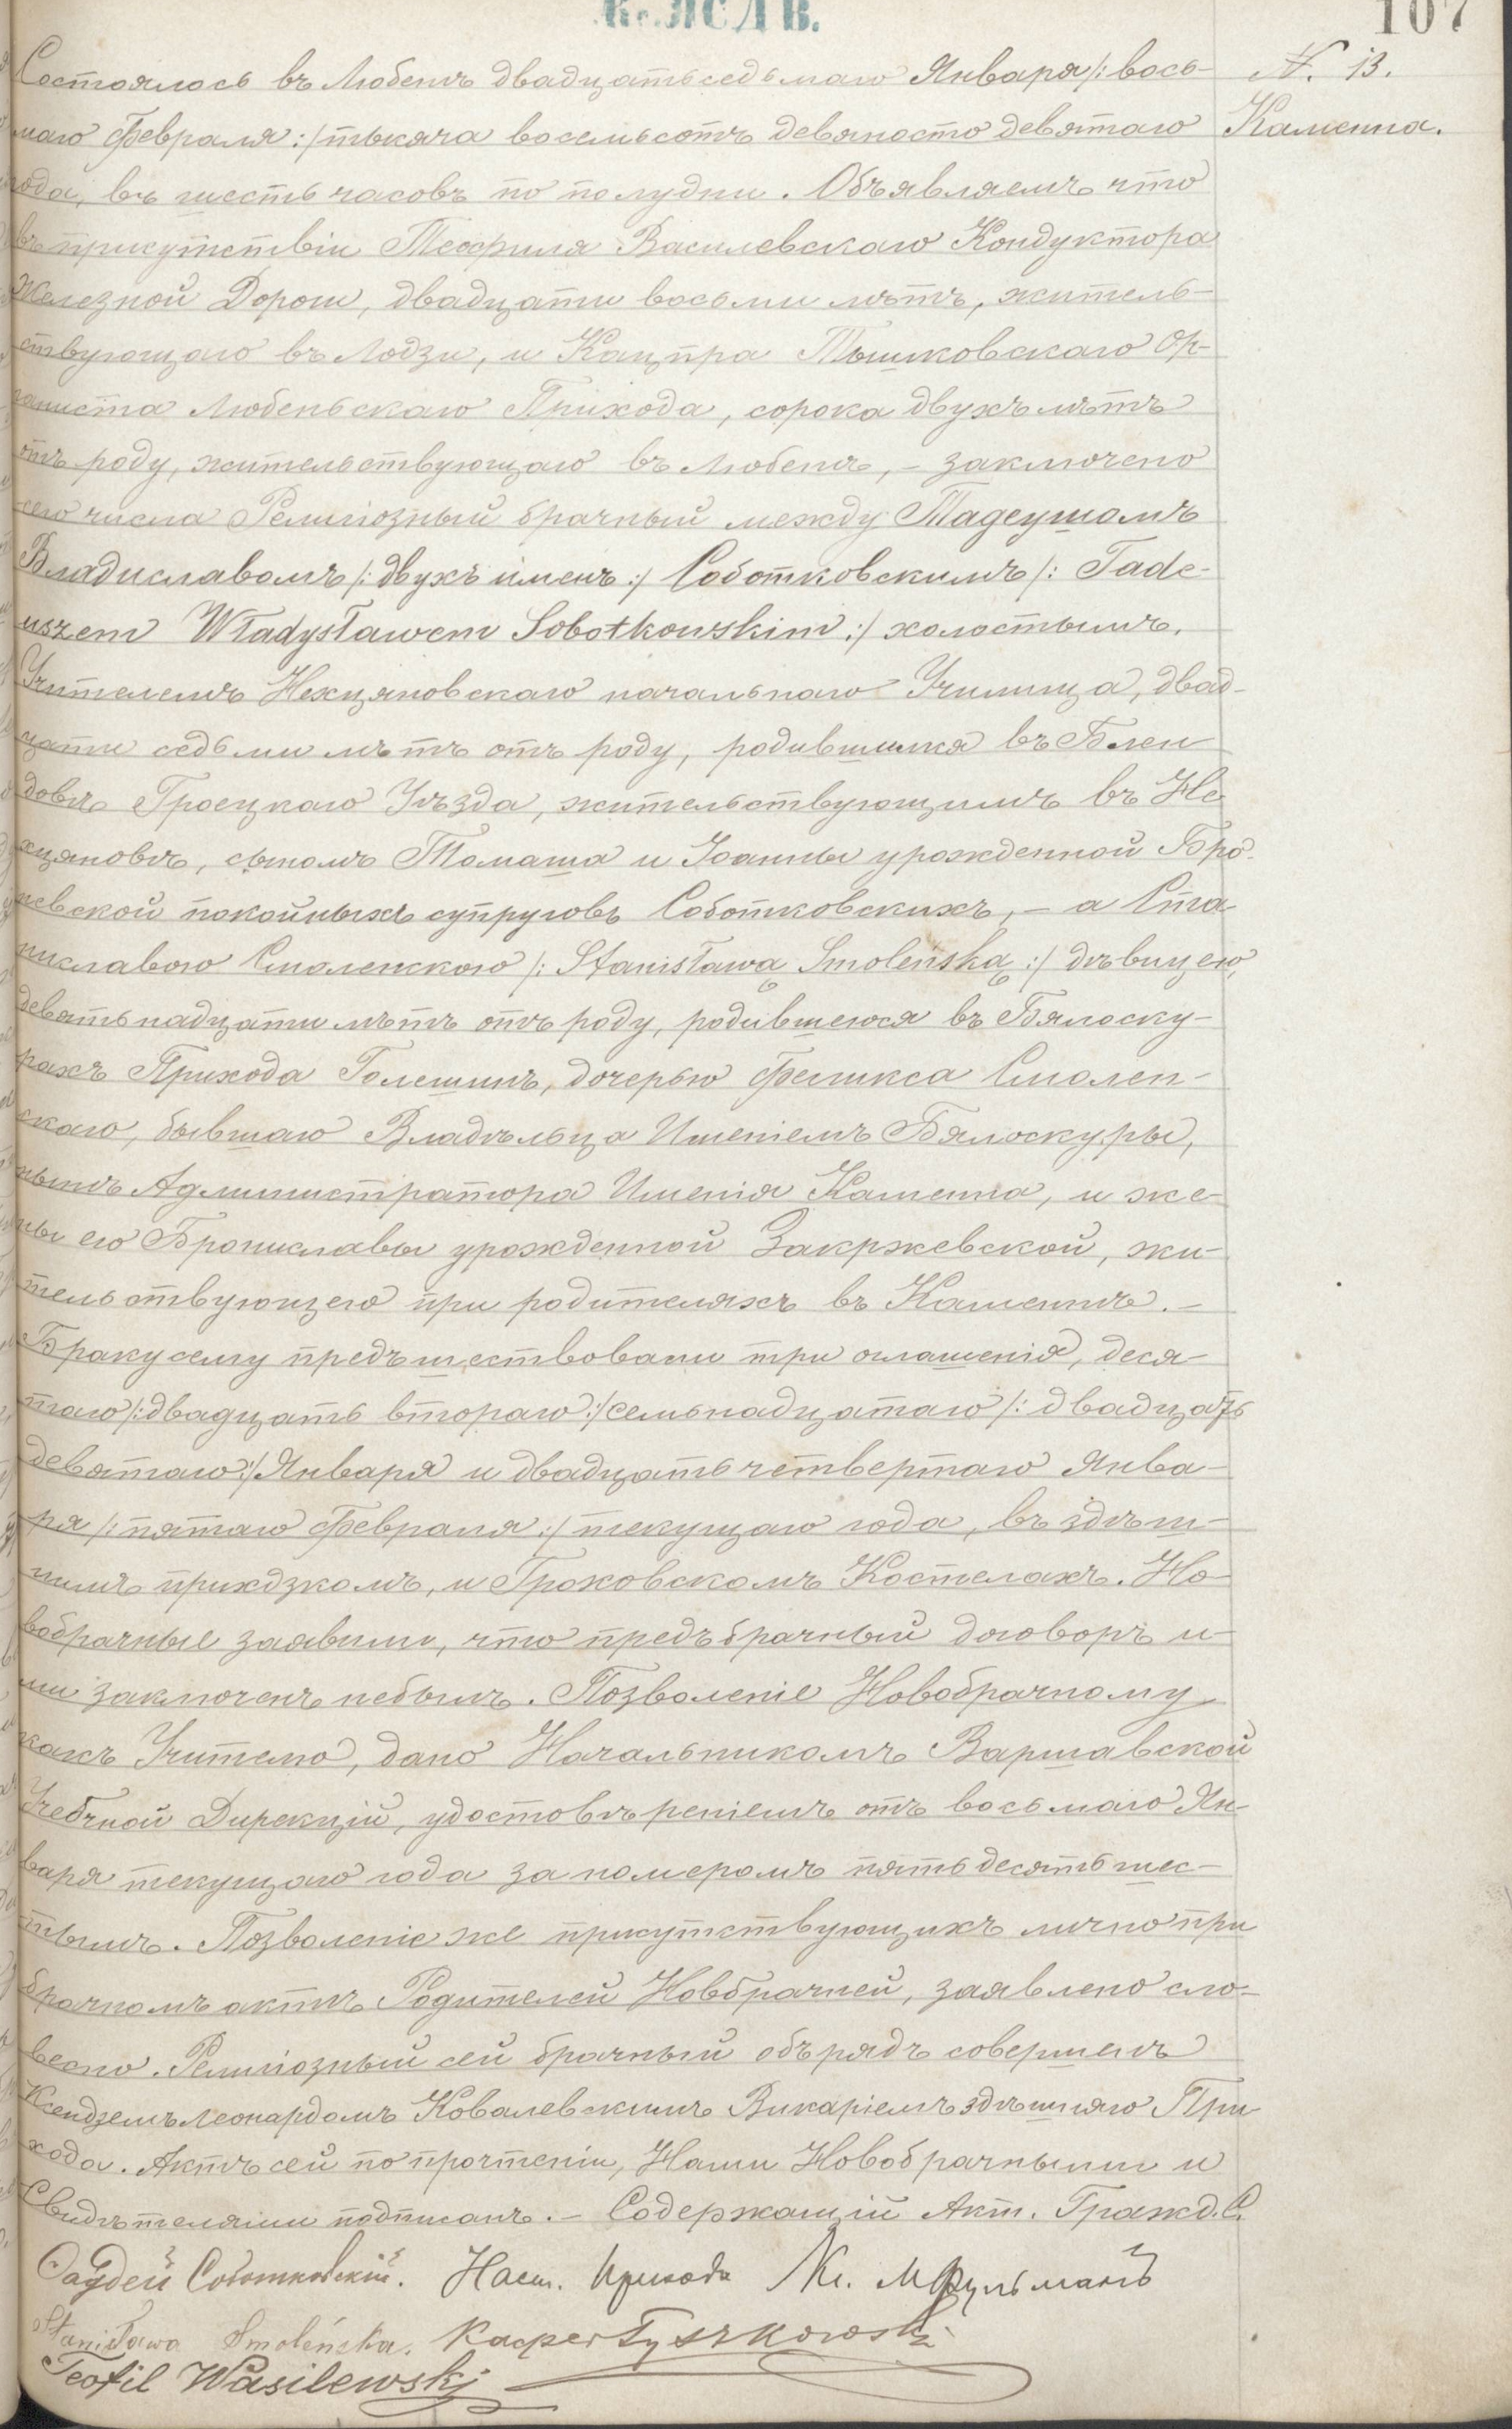 107
N. 13.
Каменна.
Состоялось въ Любенѣ двадцать седьмаго Января /: вось-
маго Февраля :/ тысяча восемьсотъ девяносто девятаго
года, въ шесть часовъ по полудни. Объявляемъ что
въ присутствіи Теофиля Василевскаго Кондуктора
Железной Дороги, двадцати восьми лѣтъ, житель-
ствующаго въ Лодзи, и Кацпра Тышковскаго Ор-
ганиста Любеньскаго Прихода, сорока двухъ лѣтъ
отъ роду, жительствующаго въ Любенѣ, – заключено
сего числа Религіозный брачный между Тадеушомъ
Владиславомъ /: двухъ именъ :/ Соботковскимъ /: Tade-
uszem Władysławem Sobotkowskim :/ холостымъ,
Учителемъ Нехцяновскаго начальнаго Училища, двад-
цати седьми лѣтъ отъ роду, родившимся въ Блен
довѣ Гроецкаго Уѣзда, жительствующимъ въ Не
хцяновѣ, сыномъ Томаша и Іоанны урожденной Бро-
невской покойныхъ супруговъ Соботковскихъ, – а Ста
ниславою Смоленскою /: Stanisławą Smoleńską :/ дѣвицею,
девятьнадцати лѣтъ отъ роду, родившеюся въ Бялоску-
рахъ Прихода Голешинъ, дочерью Феликса Смолен-
скаго, бывшаго Владѣльца Имѣніемъ Бялоскуры,
нынѣ Администратора Именія Каменна, и же-
ны его Брониславы урожденной Закржевской, жи-
тельствующею при родителяхъ въ Каменнѣ. –
Браку сему предъшествовали три оглашенія, деся-
таго /: двадцать втораго :/ семьнадцатаго /: двадцать
девятаго :/ Января и двадцать четвертаго Янва-
ря /: пятаго Февраля :/ текущаго года, въ здѣш-
нимъ приходзкомъ, и Гроховскомъ Костелахъ. Но-
вобрачные заявили, что предъбрачный договоръ и-
ми заключенъ небылъ. Позволеніе Новобрачному
какъ Учителю, дано Начальникомъ Варшавской
Учебной Дирекцій, удостовѣреніемъ отъ восьмаго Ян-
варя текущаго года за номеромъ пятьдесять шес-
тымъ. Позволеніе же присутствующихъ лично при
брачномъ актѣ Родителей Новбрачней, заявлено сло-
весно. Религіозный сей брачный обърядъ совершенъ
Ксендземъ Леонардомъ Ковалевскимъ Викаріемъ здѣшняго При
хода. Актъ сей по прочтеніи, Нами Новобрачными и
Свидѣтелями подписанъ. – Содержащій Акт. Гражд. С.
Фаддей Соботковскій. Наст. Прихода Кс.
Stanisława Smoleńska. Kacper Tyszkowski
Teofil Wasilewski